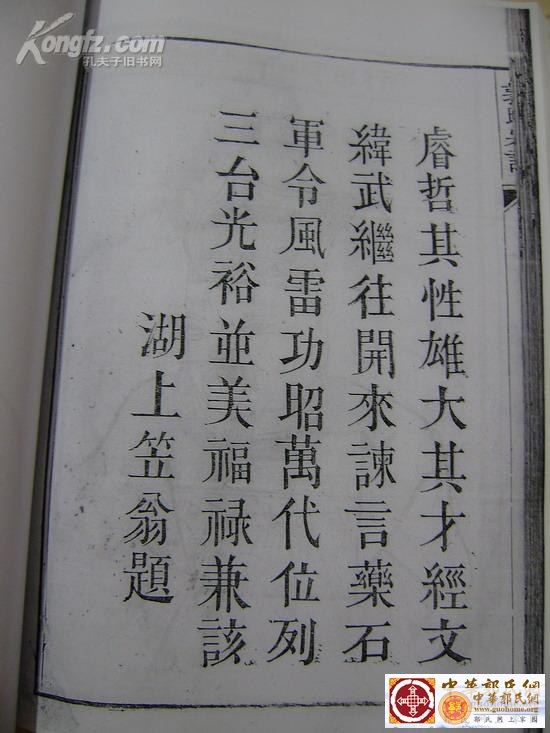 睿哲其性雄大其才經文
緯武繼往開來諫言藥石
軍令風雷功昭萬代位列
三台光裕並美福祿兼該
湖上笠翁題
Kongfz.com
孔夫子旧书网
中華郭氏網
中華郭氏網
www.guohome.org
郭氏網上家園